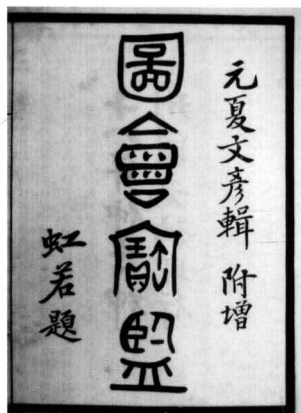 元夏文彥輯 附增
圖會寳鑑
虹若題